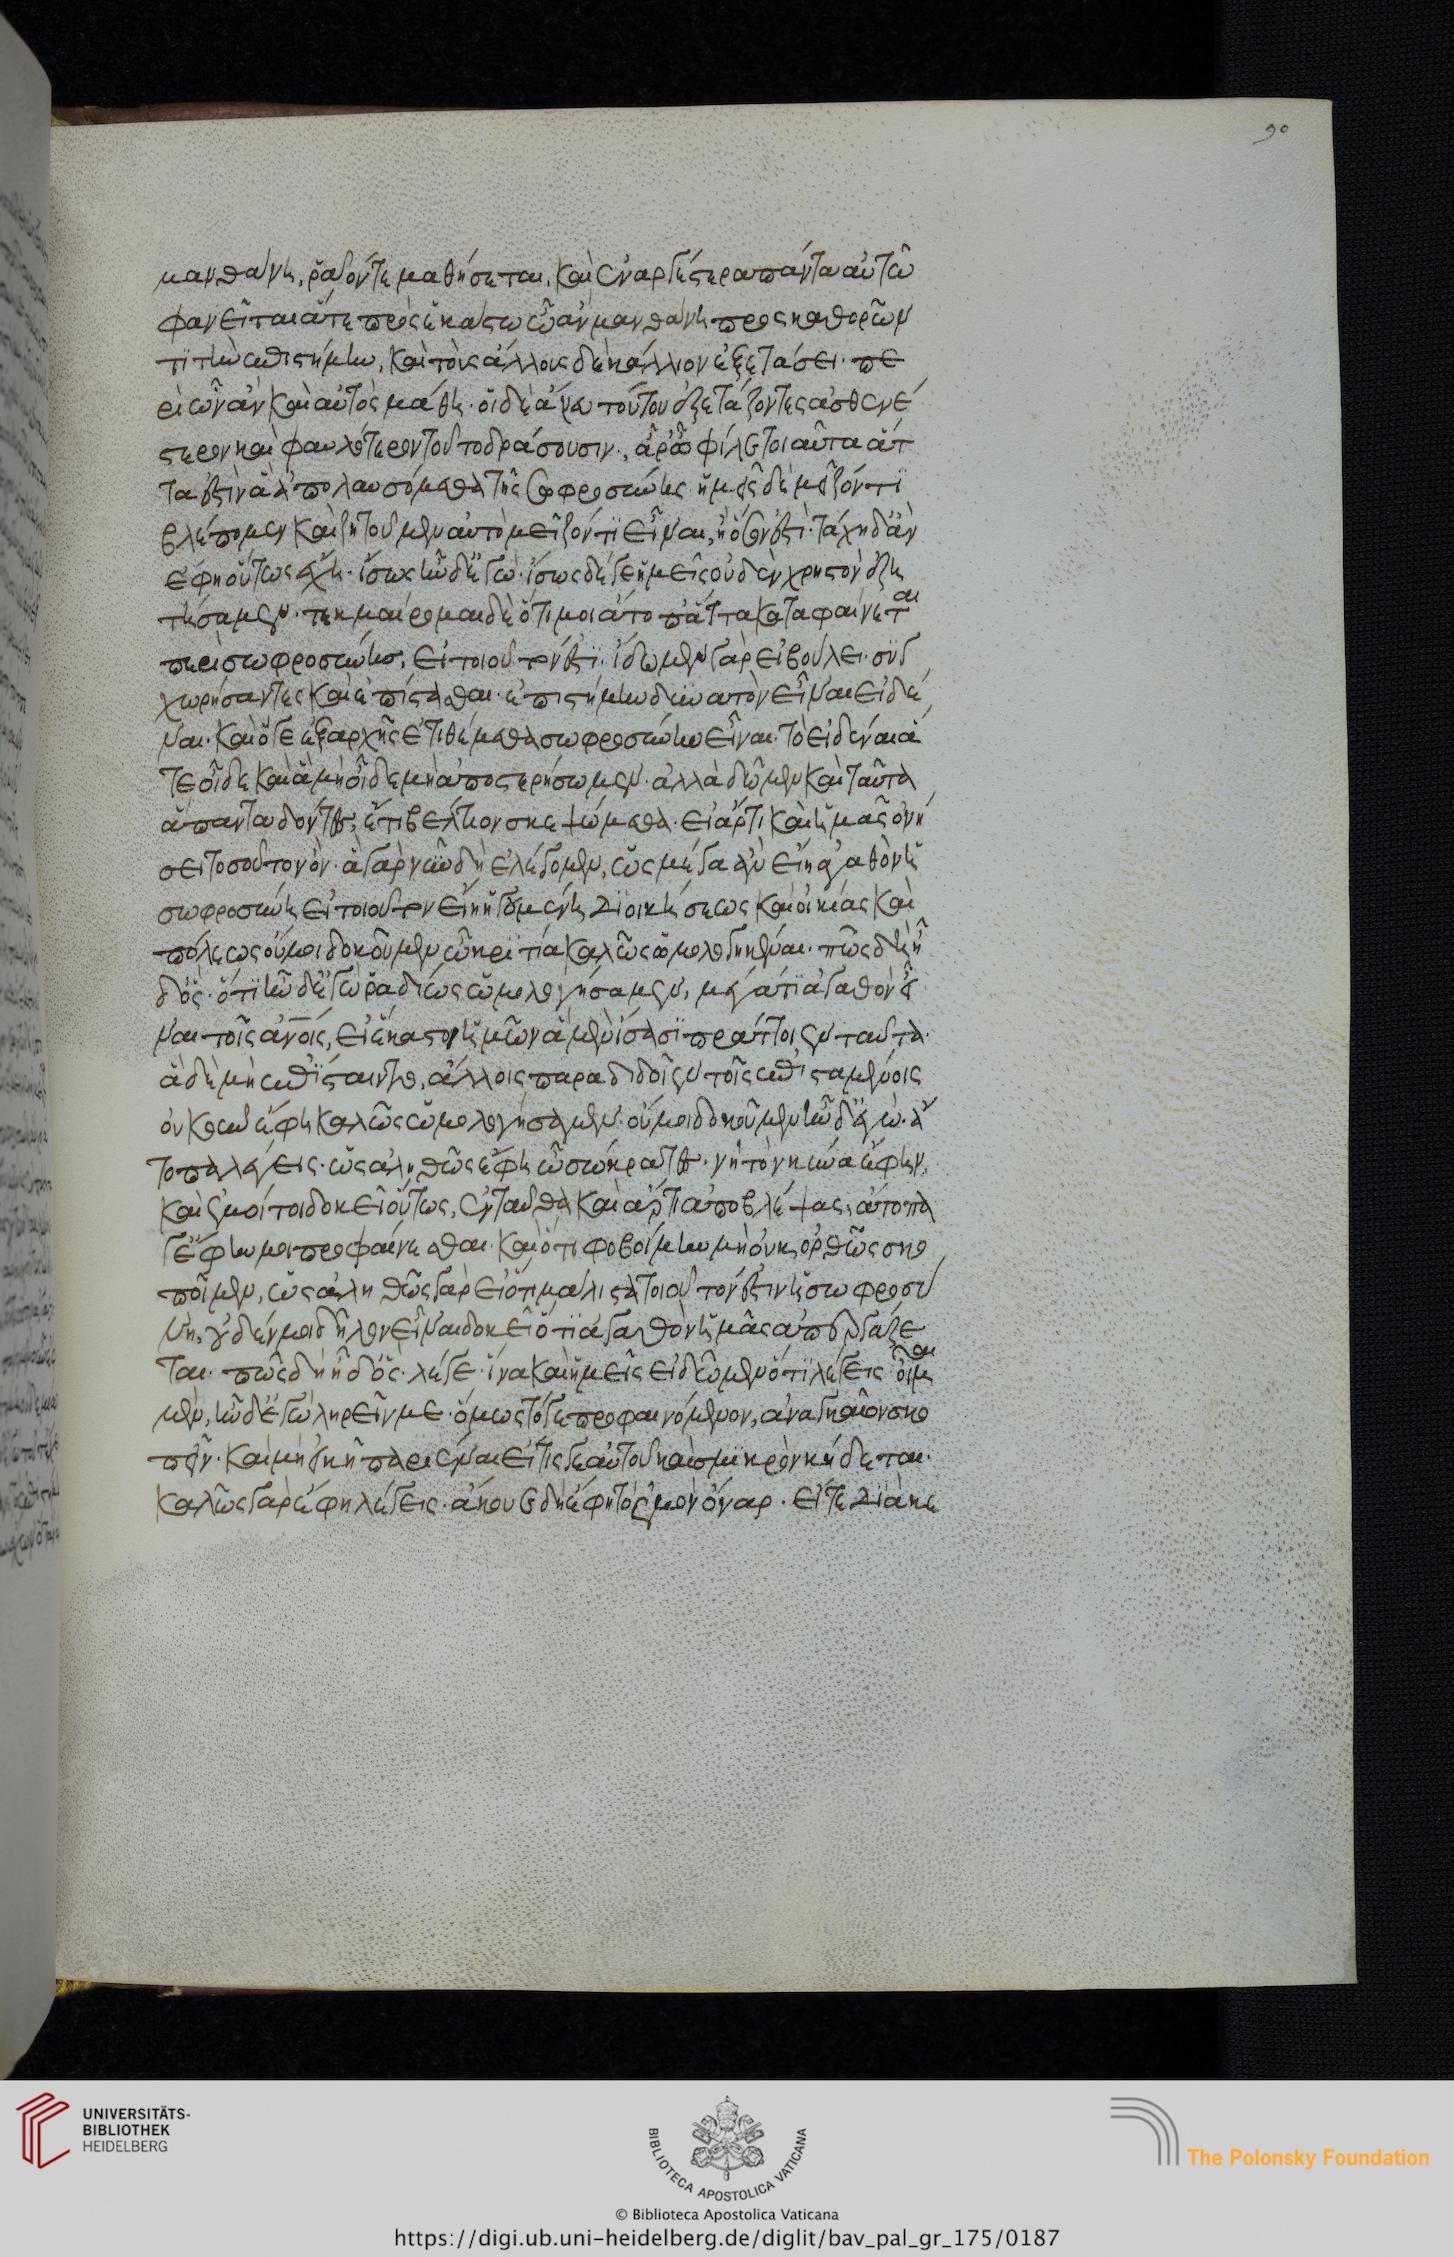 90
μανθάνῃ, ῥᾷόν τε μαθήσεται, καὶ ἐναργέστερα πάντα αὐτῷ
φανεῖται ἅτε πρὸς ἑκάστῳ ᾧ ἂν μανθάνῃ προσκαθορῶν
τι τὴν ἐπιστήμην, καὶ τοὺς ἄλλους δὴ κάλλιον ἐξετάσει· πε
ρὶ ὧν ἂν καὶ αὐτὸς μάθῃ· οἱ δὲ ἄνευ τούτου ἐξετάζοντες ἀσθενέ
στερον καὶ φαυλότερον τοῦτο δράσουσιν., ἆρ' ὦ φίλε τοιαῦτα ἄτ
τα ἐστὶν ἃ ἀπολαυσόμεθα τῆς σωφροσύνης ἡμεῖς δὲ μεῖζόν τι
βλέπομεν καὶ ζητοῦμεν αὐτὸ μεῖζόν τι εἶναι, ἢ ὅσον ἐστί· τάχα δ' ἂν
ἔφη οὕτως ἔχοι· ἴσως ἦν δ' ἐγώ· ἴσως δέ γε ἡμεῖς οὐδὲν χρηστὸν ἐζη
τήσαμεν· τεκμαίρομαι δὲ ὅτι μοι ἄτοπ' ἄττα καταφαίνεται
περὶ σωφροσύνης, εἰ τοιοῦτόν ἐστι· ἴδωμεν γὰρ εἰ βούλει· συγ
χωρήσαντες καὶ ἐπίστασθαι· ἐπιστήμην δυνατὸν εἶναι εἰδέ
ναι· καὶ ὅ γε ἐξαρχῆς ἐτιθέμεθα σωφροσύνην εἶναι· τὸ εἰδέναι ἅ
τε οἶδε καὶ ἃ μὴ οἶδε μὴ ἀποστερήσωμεν· ἀλλὰ δῶμεν καὶ ταῦτα
ἅπαντα δόντες, ἔτι βέλτιον σκεψώμεθα· εἰ ἄρτι καὶ ἡμᾶς ὀνή
σει τοσοῦτον ὄν· ἃ γὰρ νῦν δὴ ἐλέγομεν, ὡς μέγα ἂν εἴη ἀγαθὸν ἡ
σωφροσύνη εἰ τοιοῦτον εἴη ἡγουμένη διοικήσεως καὶ οἰκίας καὶ
πόλεως οὔ μοι δοκοῦμεν ὦ κριτία καλῶς ὡμολογηκέναι· πῶς δὴ ἦ
δ' ὅς· ὅτι ἦν δ' ἐγὼ ῥαδίως ὡμολογήσαμεν, μέγα τι ἀγαθὸν εἶ
ναι τοῖς ἀνοῖς, εἰ ἕκαστοι ἡμῶν ἃ μὲν ἴσασι πράττοιεν ταῦτα·
ἃ δὲ μὴ ἐπίσταιντο, ἄλλοις παραδιδοῖεν τοῖς ἐπισταμένοις
οὐκ οὖν ἔφη καλῶς ὡμολογήσαμεν· οὔ μοι δοκοῦμεν ἦν δ' ἐγώ· ἄ
τοπα λέγεις· ὡς ἀληθῶς ἔφη ὦ σώκρατες· νὴ τὸν κύνα ἔφην,
καὶ ἐμοί τοι δοκεῖ οὕτως, ἐνταῦθα καὶ ἄρτι ἀποβλέψας, ἄτοπά
γ' ἔφην μοι προφαίνεσθαι· καὶ ὅτι φοβοίμην μὴ οὐκ ὀρθῶς σκο
ποῖμεν, ὡς ἀληθῶς γὰρ εἰ ὅτι μάλιστα τοιοῦτόν ἐστιν ἡ σωφροσύ
νη, οὐδέν μοι δῆλον εἶναι δοκεῖ ὅτι ἀγαθὸν ἡμᾶς ἀπεργάζε
ται· πῶς δὴ ἦ δ' ὅς· λέγε· ἵνα καὶ ἡμεῖς εἰδῶμεν ὅτι λέγεις οἶμαι
μὲν, ἦν δ' ἐγὼ ληρεῖν με· ὅμως τό γε προφαινόμενον, ἀναγκαῖον σκο
πεῖν· καὶ μὴ εἰκῇ παριέναι εἴ τις γε αὐτοῦ καὶ σμικρὸν κήδεται·
καλῶς γὰρ ἔφη λέγεις· ἄκουε δὴ ἔφη τὸ ἐμὸν ὄναρ· εἴτε διὰ κε
UNIVERSITÄTS-
BIBLIOTHEK
HEIDELBERG
BIBLIOTECA APOSTOLICA VATICANA
The Polonsky Foundation
© Biblioteca Apostolica Vaticana
https://digi.ub.uni-heidelberg.de/diglit/bav_pal_gr_175/0187